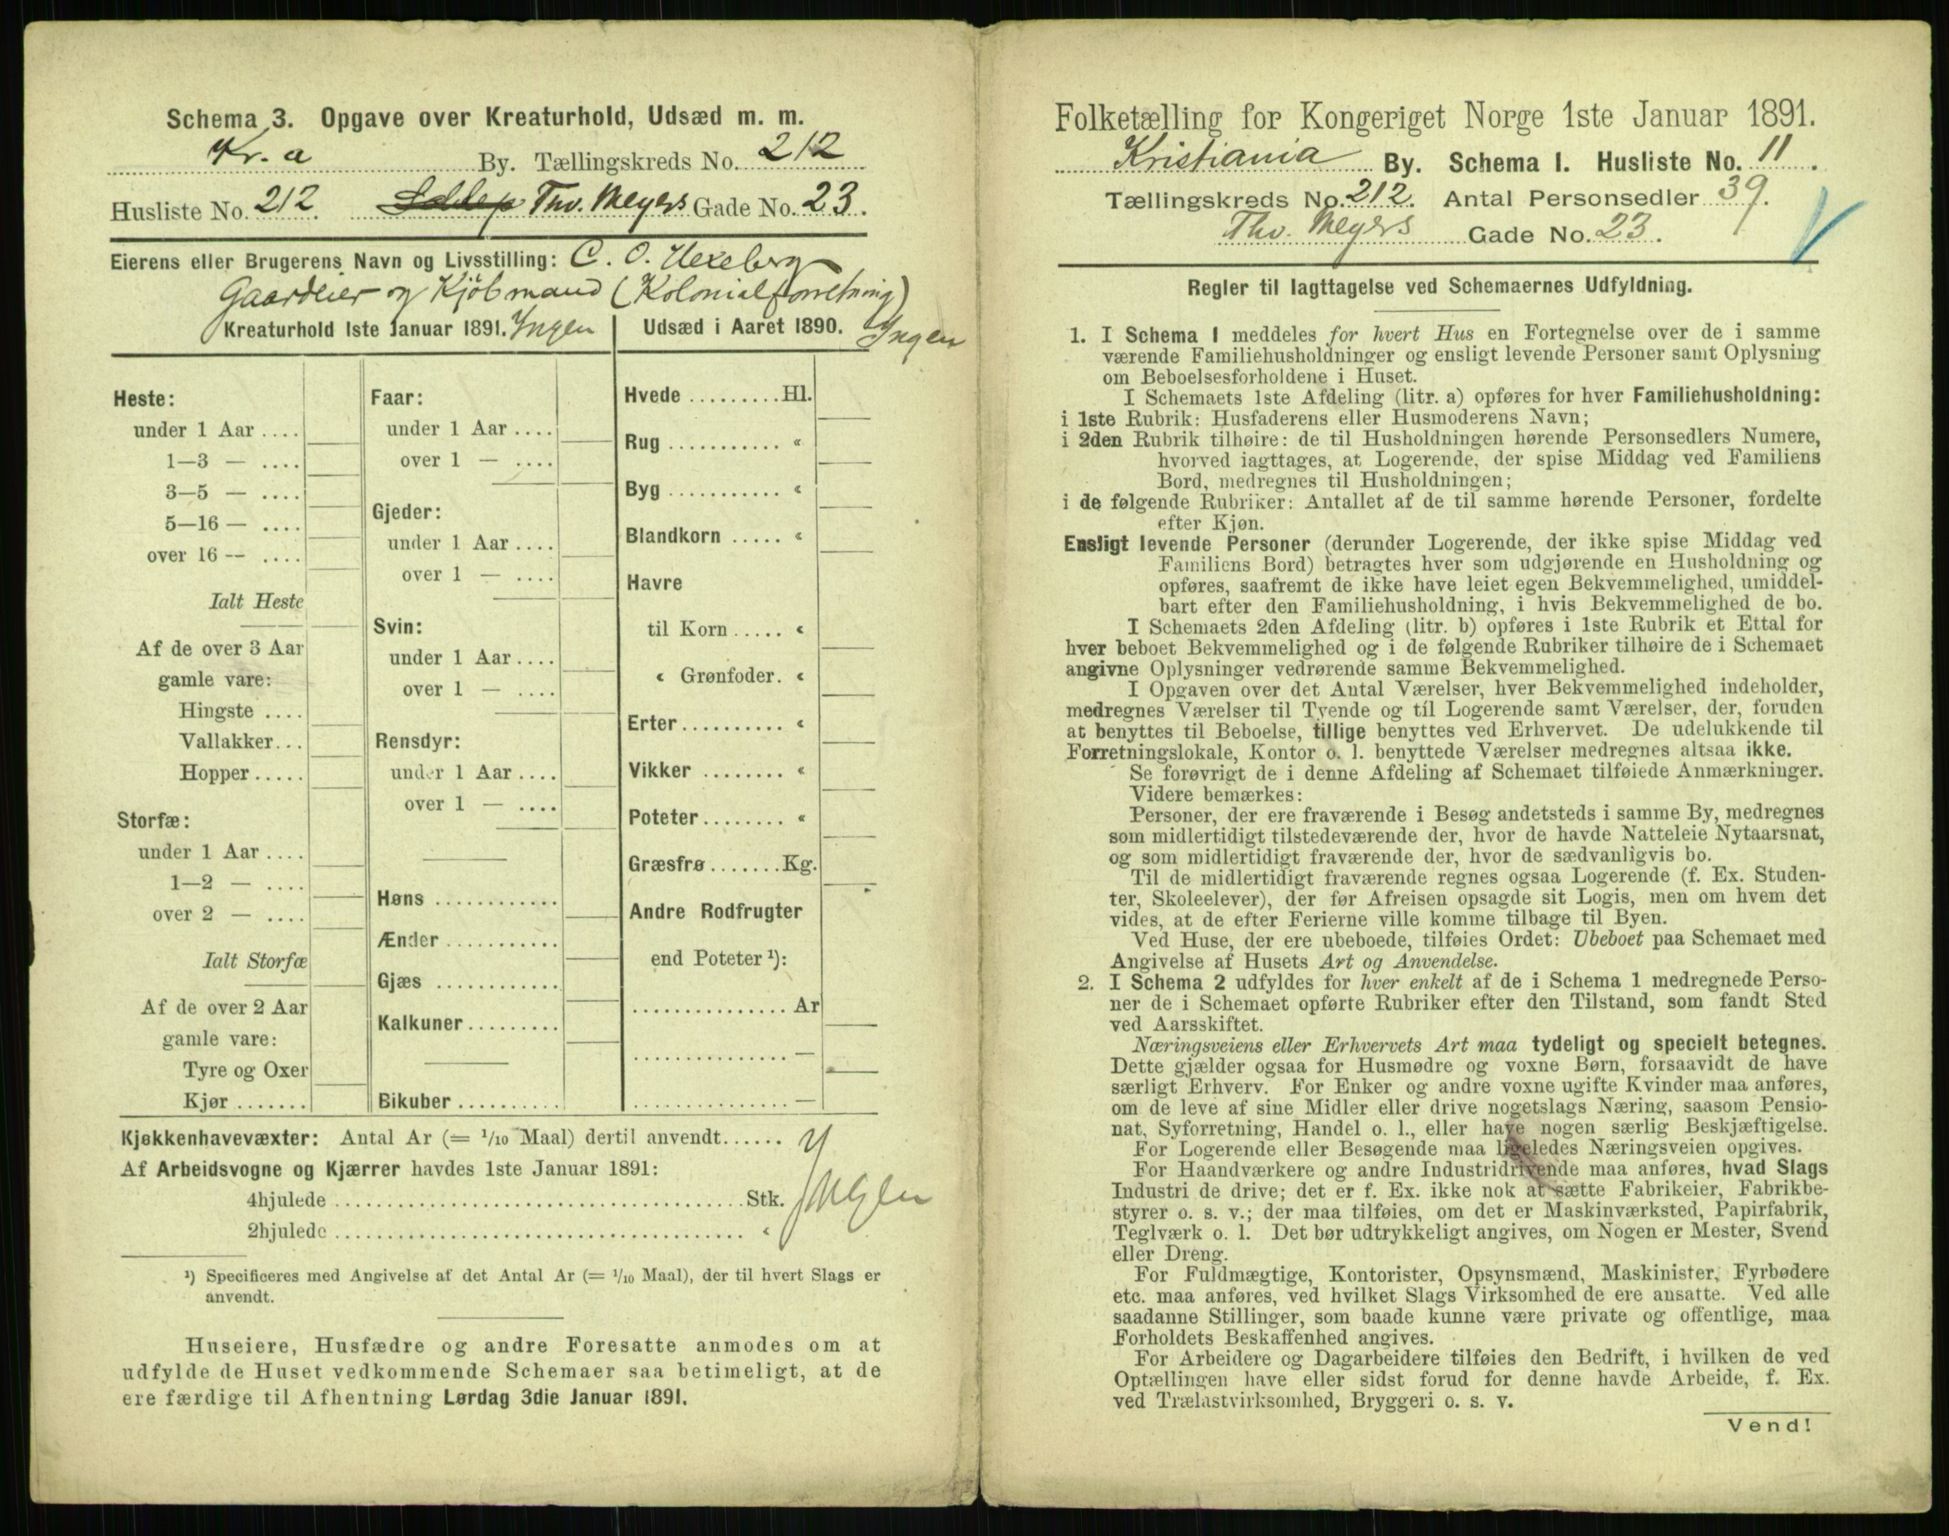 Schema 3. Opgave over Kreaturhold, Udsæd m. m.
Kr.a By. Tællingskreds No. 212
Husliste No. 212. Thv. Meyers Gade No. 23.
Eierens eller Brugerens Navn og Livsstilling: C. O. Hexeberg
Gaardeier og Kjöbmand (Kolonialforretning)
Kreaturhold 1ste Januar 1891. Ingen
Udsæd i Aaret 1890. Ingen
Heste:
under 1 Aar ....
1—3 — ....
3—5 — ....
5—16 — ....
over 16 — ....
Ialt Heste
Af de over 3 Aar
gamle vare:
Hingste ....
Vallakker...
Hopper.....
Storfæ:
under 1 Aar ....
1—2 — ....
over 2 — ....
Ialt Storfæ
Af de over 2 Aar
gamle vare:
Tyre og Oxer
Kjør.......
Faar:
under 1 Aar ....
over 1 — ....
Gjeder:
under 1 Aar ....
over 1 — ....
Svin:
under 1 Aar ....
over 1 — ....
Rensdyr:
under 1 Aar ....
over 1 — ....
Høns ............
Ænder ...........
Gjæs ............
Kalkuner.........
Bikuber..........
Hvede .........Hl.
Rug ........... «
Byg ........... «
Blandkorn ..... «
Havre
til Korn ..... «
« Grønfoder. «
Erter.......... «
Vikker ........ «
Poteter........ «
Græsfrø .......Kg.
Andre Rodfrugter
end Poteter ¹):
............... Ar
............... —
............... —
Kjøkkenhavevæxter: Antal Ar (= 1/10 Maal) dertil anvendt......
Af Arbeidsvogne og Kjærrer havdes 1ste Januar 1891:
4hjulede ..................................... Stk. Ingen
2hjulede ..................................... «
¹) Specificeres med Angivelse af det Antal Ar (= 1/10 Maal), der til hvert Slags er
anvendt.
Huseiere, Husfædre og andre Foresatte anmodes om at
udfylde de Huset vedkommende Schemaer saa betimeligt, at de
ere færdige til Afhentning Lørdag 3die Januar 1891.
Folketælling for Kongeriget Norge 1ste Januar 1891.
Kristiania By. Schema I. Husliste No. 11.
Tællingskreds No. 212. Antal Personsedler 39.
Thv. Meyers Gade No. 23.
Regler til Iagttagelse ved Schemaernes Udfyldning.
1. I Schema 1 meddeles for hvert Hus en Fortegnelse over de i samme
værende Familiehusholdninger og ensligt levende Personer samt Oplysning
om Beboelsesforholdene i Huset.
I Schemaets 1ste Afdeling (litr. a) opføres for hver Familiehusholdning:
i 1ste Rubrik: Husfaderens eller Husmoderens Navn;
i 2den Rubrik tilhøire: de til Husholdningen hørende Personsedlers Numere,
hvorved iagttages, at Logerende, der spise Middag ved Familiens
Bord, medregnes til Husholdningen;
i de følgende Rubriker: Antallet af de til samme hørende Personer, fordelte
efter Kjøn.
Ensligt levende Personer (derunder Logerende, der ikke spise Middag ved
Familiens Bord) betragtes hver som udgjørende en Husholdning og
opføres, saafremt de ikke have leiet egen Bekvemmelighed, umiddel-
bart efter den Familiehusholdning, i hvis Bekvemmelighed de bo.
I Schemaets 2den Afdeling (litr. b) opføres i 1ste Rubrik et Ettal for
hver beboet Bekvemmelighed og i de følgende Rubriker tilhøire de i Schemaet
angivne Oplysninger vedrørende samme Bekvemmelighed.
I Opgaven over det Antal Værelser, hver Bekvemmelighed indeholder,
medregnes Værelser til Tyende og til Logerende samt Værelser, der, foruden
at benyttes til Beboelse, tillige benyttes ved Erhvervet. De udelukkende til
Forretningslokale, Kontor o. l. benyttede Værelser medregnes altsaa ikke.
Se forøvrigt de i denne Afdeling af Schemaet tilføiede Anmærkninger.
Videre bemærkes:
Personer, der ere fraværende i Besøg andetsteds i samme By, medregnes
som midlertidigt tilstedeværende der, hvor de havde Natteleie Nytaarsnat,
og som midlertidigt fraværende der, hvor de sædvanligvis bo.
Til de midlertidigt fraværende regnes ogsaa Logerende (f. Ex. Studen-
ter, Skoleelever), der før Afreisen opsagde sit Logis, men om hvem det
vides, at de efter Ferierne ville komme tilbage til Byen.
Ved Huse, der ere ubeboede, tilføies Ordet: Ubeboet paa Schemaet med
Angivelse af Husets Art og Anvendelse.
2. I Schema 2 udfyldes for hver enkelt af de i Schema 1 medregnede Perso-
ner de i Schemaet opførte Rubriker efter den Tilstand, som fandt Sted
ved Aarsskiftet.
Næringsveiens eller Erhvervets Art maa tydeligt og specielt betegnes.
Dette gjælder ogsaa for Husmødre og voxne Børn, forsaavidt de have
særligt Erhverv. For Enker og andre voxne ugifte Kvinder maa anføres,
om de leve af sine Midler eller drive nogetslags Næring, saasom Pensio-
nat, Syforretning, Handel o. l., eller have nogen særlig Beskjæftigelse.
For Logerende eller Besøgende maa ligeledes Næringsveien opgives.
For Haandværkere og andre Industridrivende maa anføres, hvad Slags
Industri de drive; det er f. Ex. ikke nok at sætte Fabrikeier, Fabrikbe-
styrer o. s. v.; der maa tilføies, om det er Maskinværksted, Papirfabrik,
Teglværk o. l. Det bør udtrykkeligt angives, om Nogen er Mester, Svend
eller Dreng.
For Fuldmægtige, Kontorister, Opsynsmænd, Maskinister, Fyrbødere
etc. maa anføres, ved hvilket Slags Virksomhed de ere ansatte. Ved alle
saadanne Stillinger, som baade kunne være private og offentlige, maa
Forholdets Beskaffenhed angives.
For Arbeidere og Dagarbeidere tilføies den Bedrift, i hvilken de ved
Optællingen have eller sidst forud for denne havde Arbeide, f. Ex.
ved Trælastvirksomhed, Bryggeri o. s. v.
Vend!